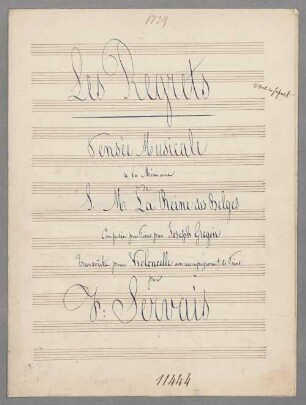 1739
Les Regrets
Pensée Musicale
à la Mémoire
de
S. M. La Reine des Belges
Composée pour Piano par Joseph Gregoir
Transcrite pour Violoncelle avec accompagnement de Piano
par
Fs: Servais
11444